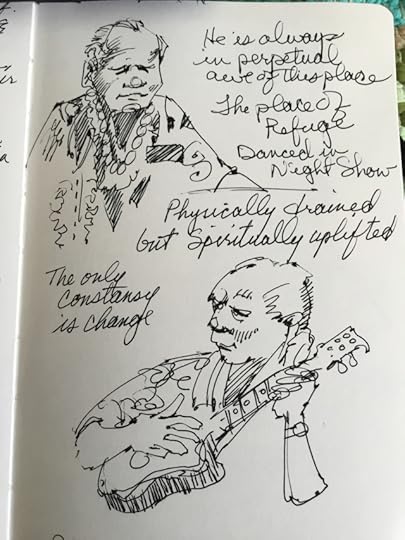 He is always
in perpetual
awe of this place
The place of
Refuge
Danced in
Night Show
Physically drained
but Spiritually uplifted
The only
constansy
is change